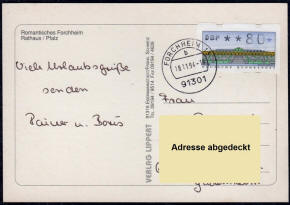 Romantisches Forchheim
Rathaus / Pfalz
DBP ** 80*
FORCHHEIM
b
18.11.94
91301
Viele Urlaubsgrüße
senden
Rainer u. Boris
Frau
Adresse abgedeckt
VERLAG LIPPERT